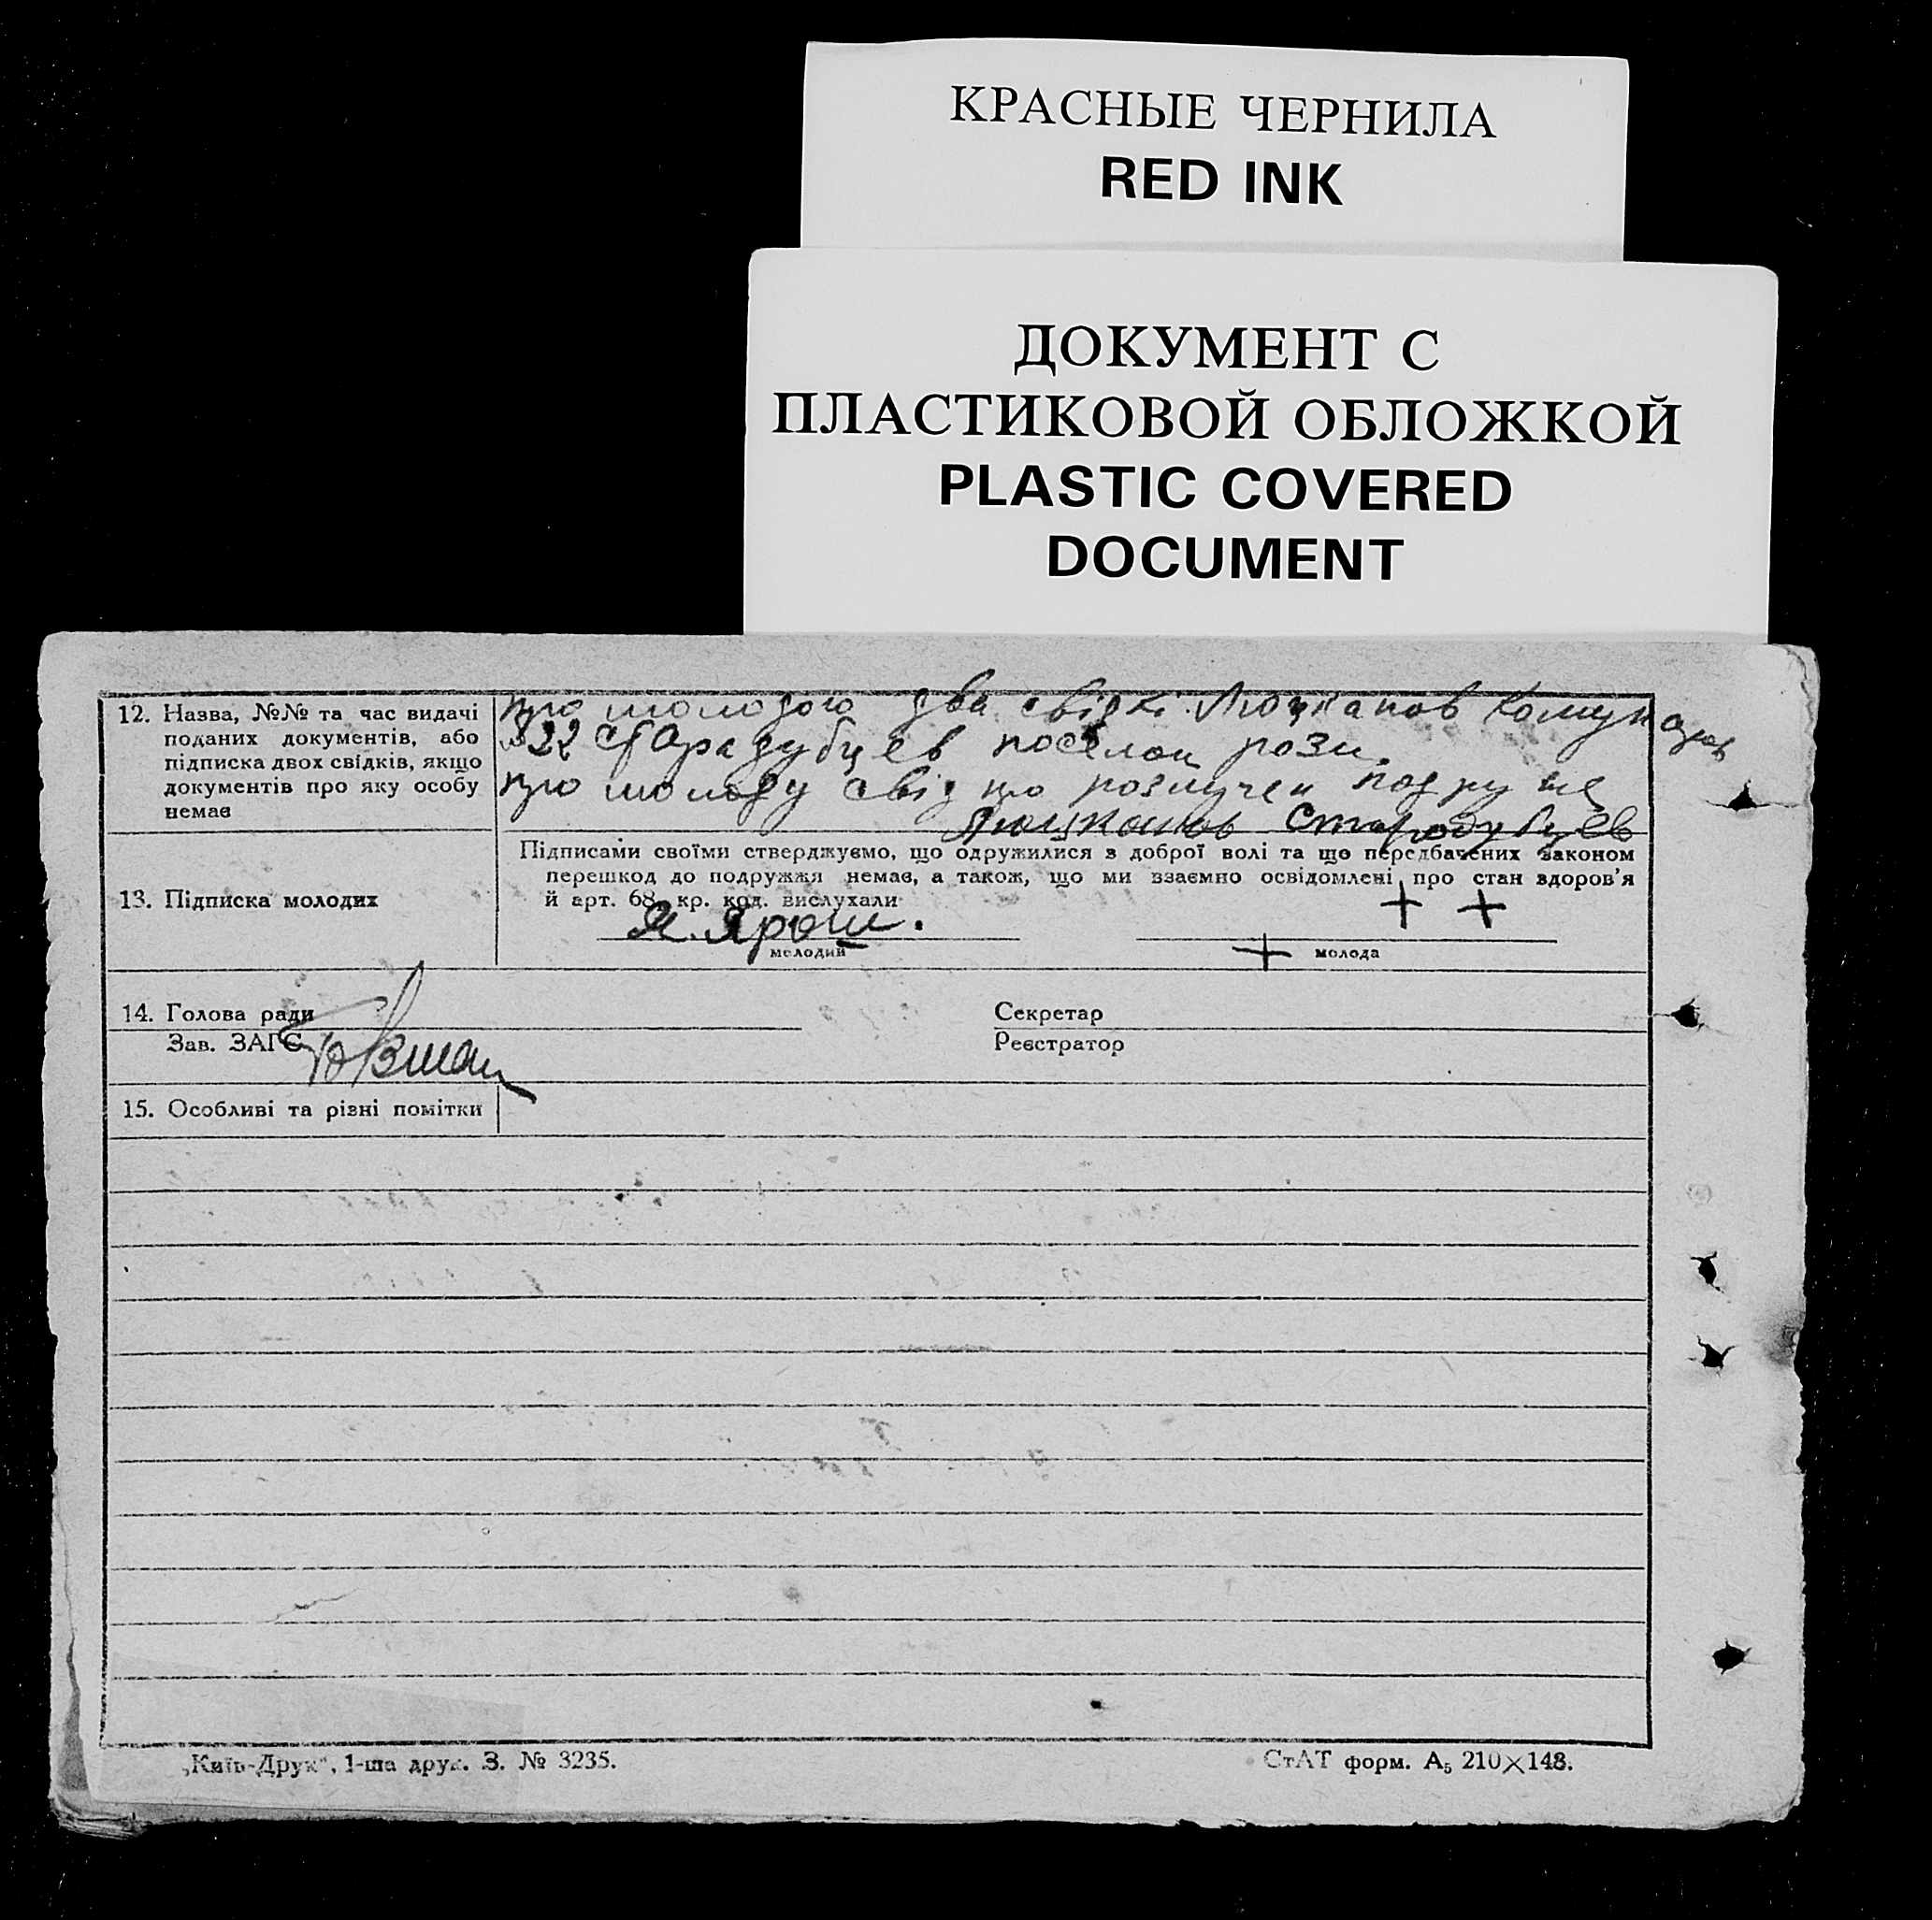 КРАСНЫЕ ЧЕРНИЛА
RED INK
ДОКУМЕНТ С
ПЛАСТИКОВОЙ ОБЛОЖКОЙ
PLASTIC COVERED
DOCUMENT
12. Назва, №№ та час видачі
поданих документів, або
підписка двох свідків, якщо
документів про яку особу
немає
про молодого два свідкі
22 Старадубцев поселок рози
про молоду свід про розлучен подружже
Стародубцев
13. Підписка молодих
Підписами своїми стверджуємо, що одружилися з доброї волі та що передбачених законом
перешкод до подружжя немає, а також, що ми взаємно освідомлені про стан здоров'я
й арт. 68, кр. код. вислухали
Я. Ярош.
+ +
+
молодий
молода
14. Голова ради
Секретар
Зав. ЗАГС
Реєстратор
15. Особливі та різні помітки
„Київ-Друк“, 1-ша друк. З. № 3235.
СтАТ форм. А₅ 210×148.